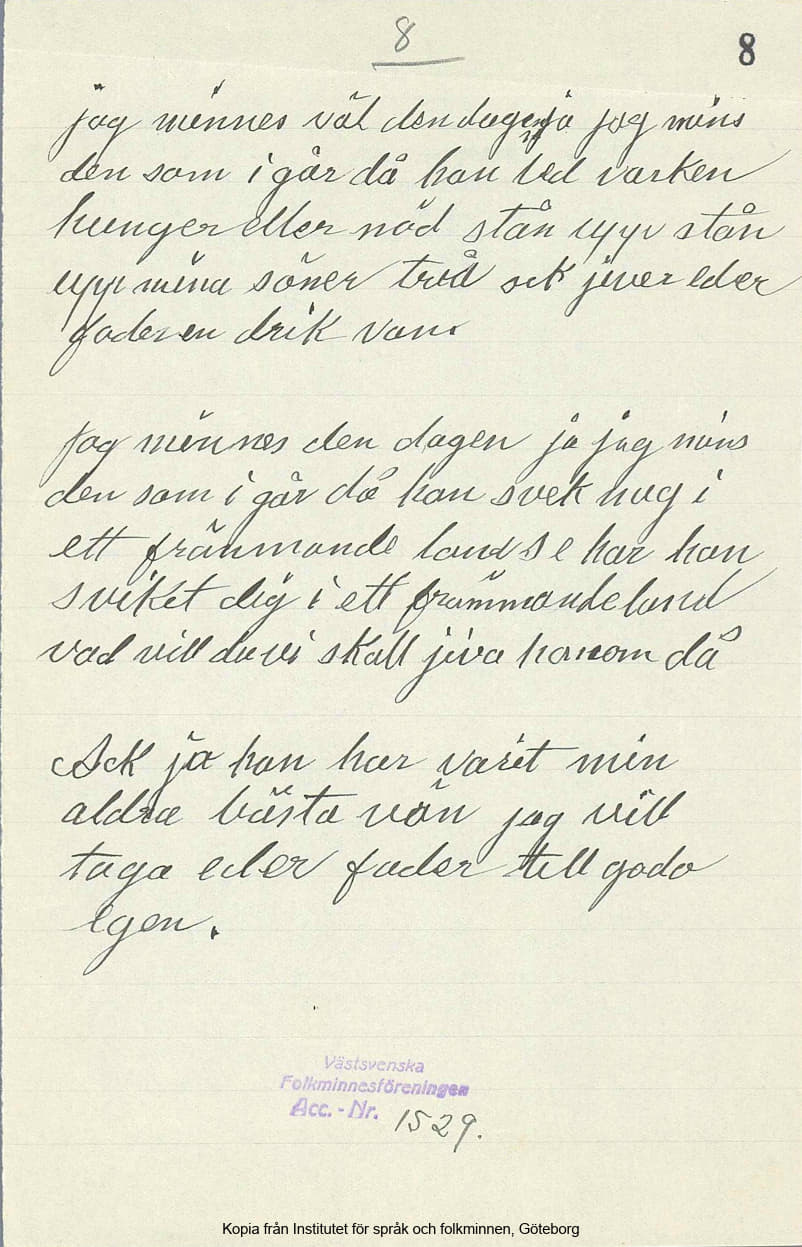 8 8
jag minnes väl den dagen ja jag mins
den som i går då han led varken
hunger eller nöd stån upp stån
upp mina söner två ock jiver eder
faderen drik van
jag minnes den dagen ja jag mins
den som i går då han svek mig i
ett främmande land se har han
sviket dig i ett främmande land
vad vill du vi skall jiva honom då
Ack ja han har varit min
aldra bästa vän jag vill
taga eder fader till godo
igen.
Västsvenska
Folkminnesföreningen
Acc.-Nr. 1529.
Kopia från Institutet för språk och folkminnen, Göteborg